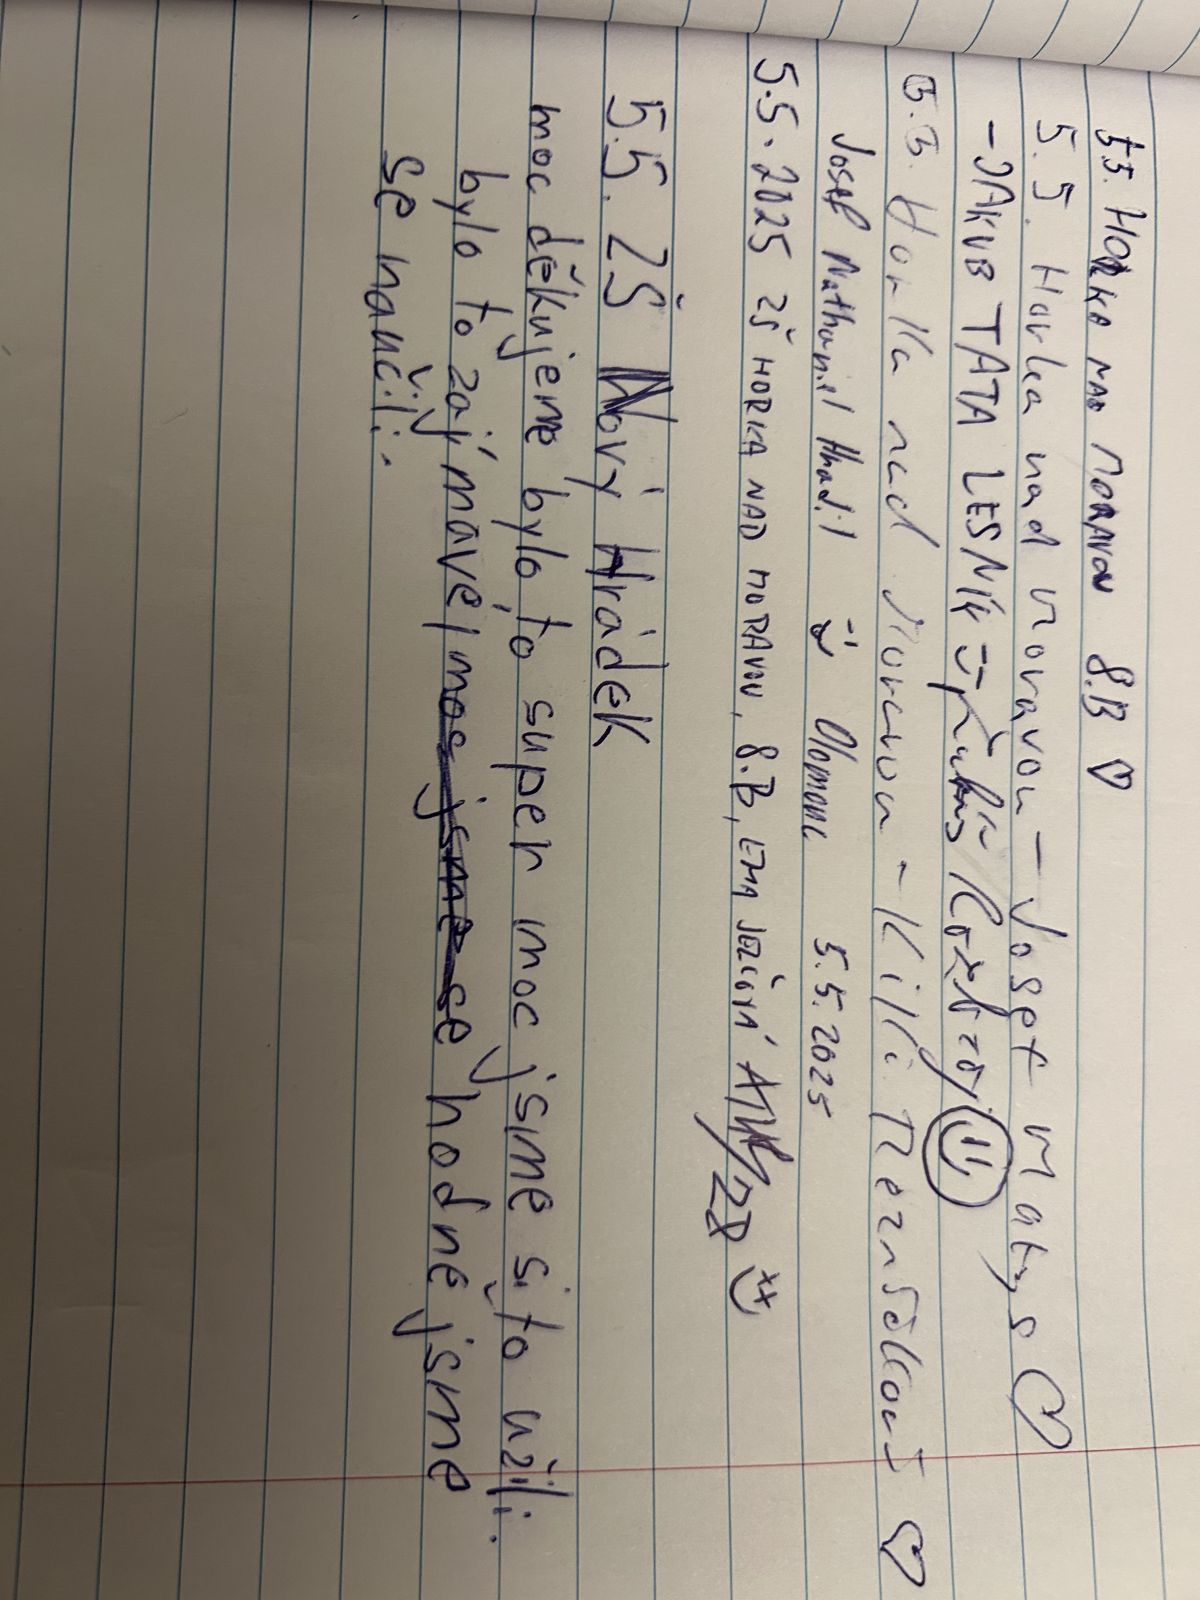 5.5. HORKA NAD MORAVOU 8.B ♡
5.5. Horka nad Moravou - Josef Matys ♡
- JAKUB TATA LESNÍK
5.5. Horka nad Moravou - Kiki Řezníčková ♡
Josef Nathaniel Hradil Olomouc 5.5.2025
5.5.2025 ZŠ HORKA NAD MORAVOU, 8.B, EMA JEŽOVÁ
5.5. ZŠ Nový Hrádek
moc děkujeme bylo to super moc jsme si to užili.
bylo to zajímavé, moc jsme se hodně jsme
se naučili.